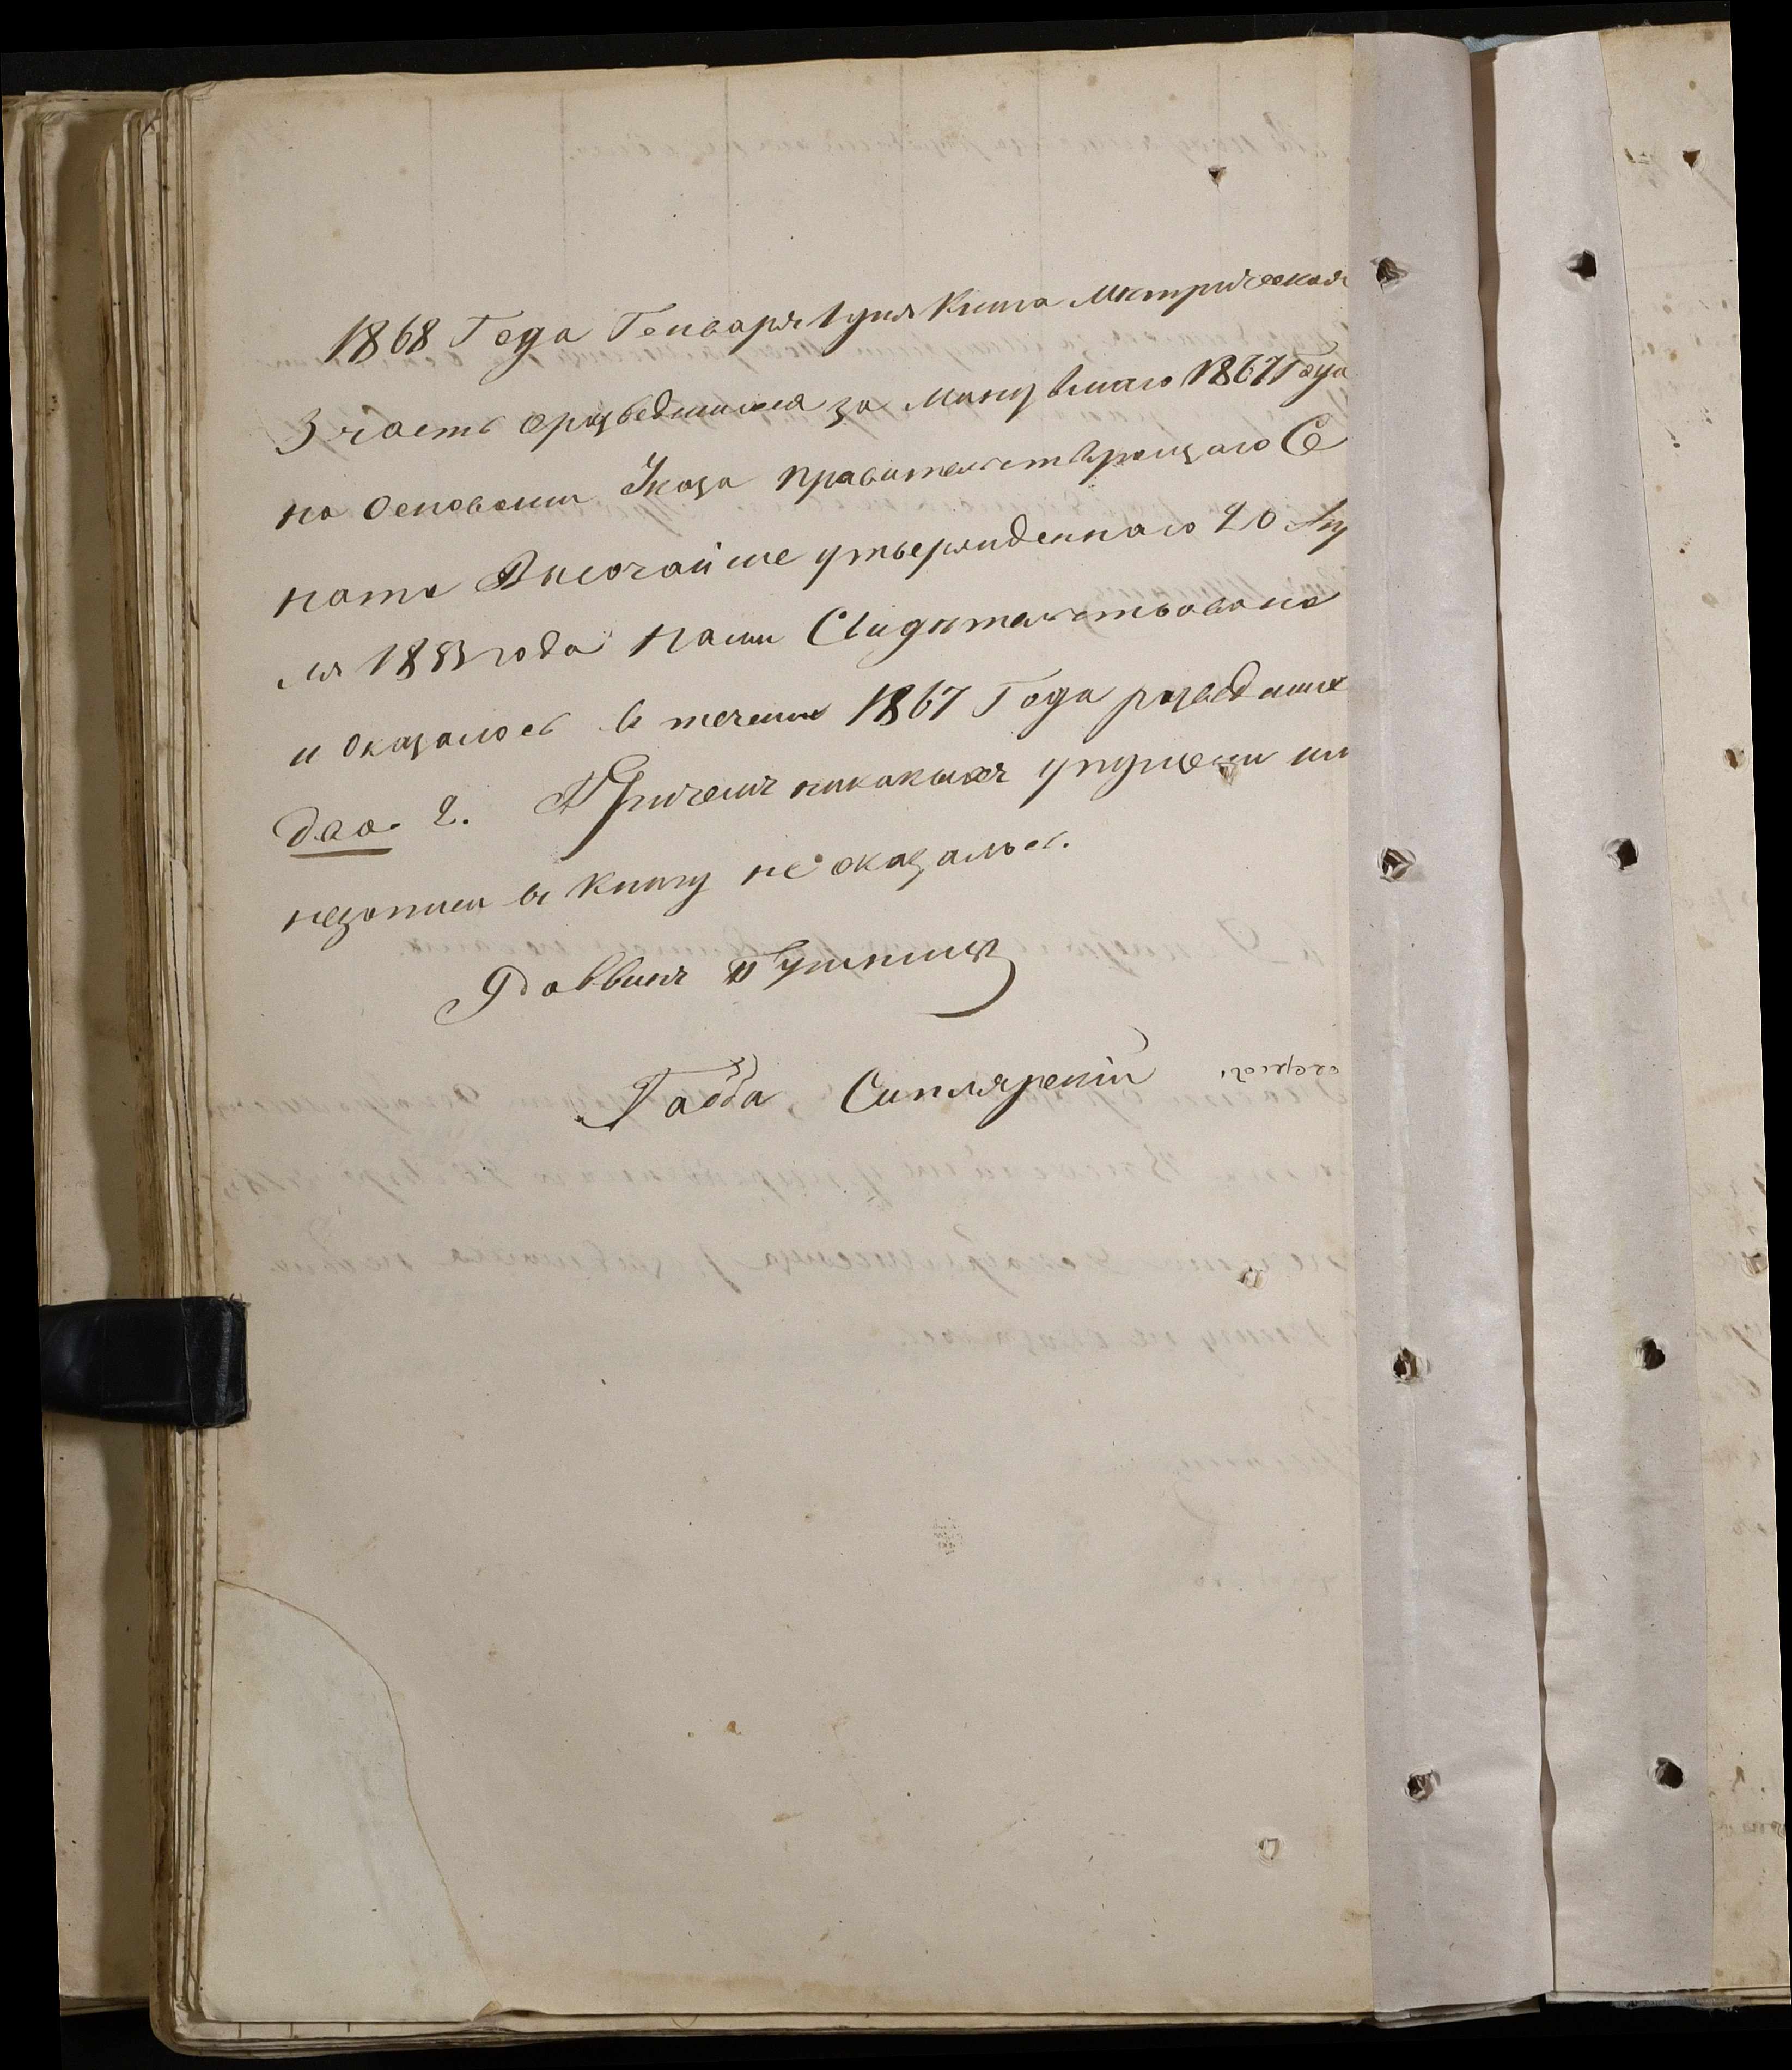 1868 Года Генваря 1 дня Книга Метрическая
3 часть оразведшихся за минувшаго 1867 Года
на основании Указа правительствующаго Се
ната Высочайше утвержденнаго 20 Ап
ля 18 года нами Свидетельствована
и оказалось в течении 1867 Года разведших
два 2. Причемъ никакихъ упущени ни
незаписи в книгу не оказалось.
Раввинъ
Габа Симлярский